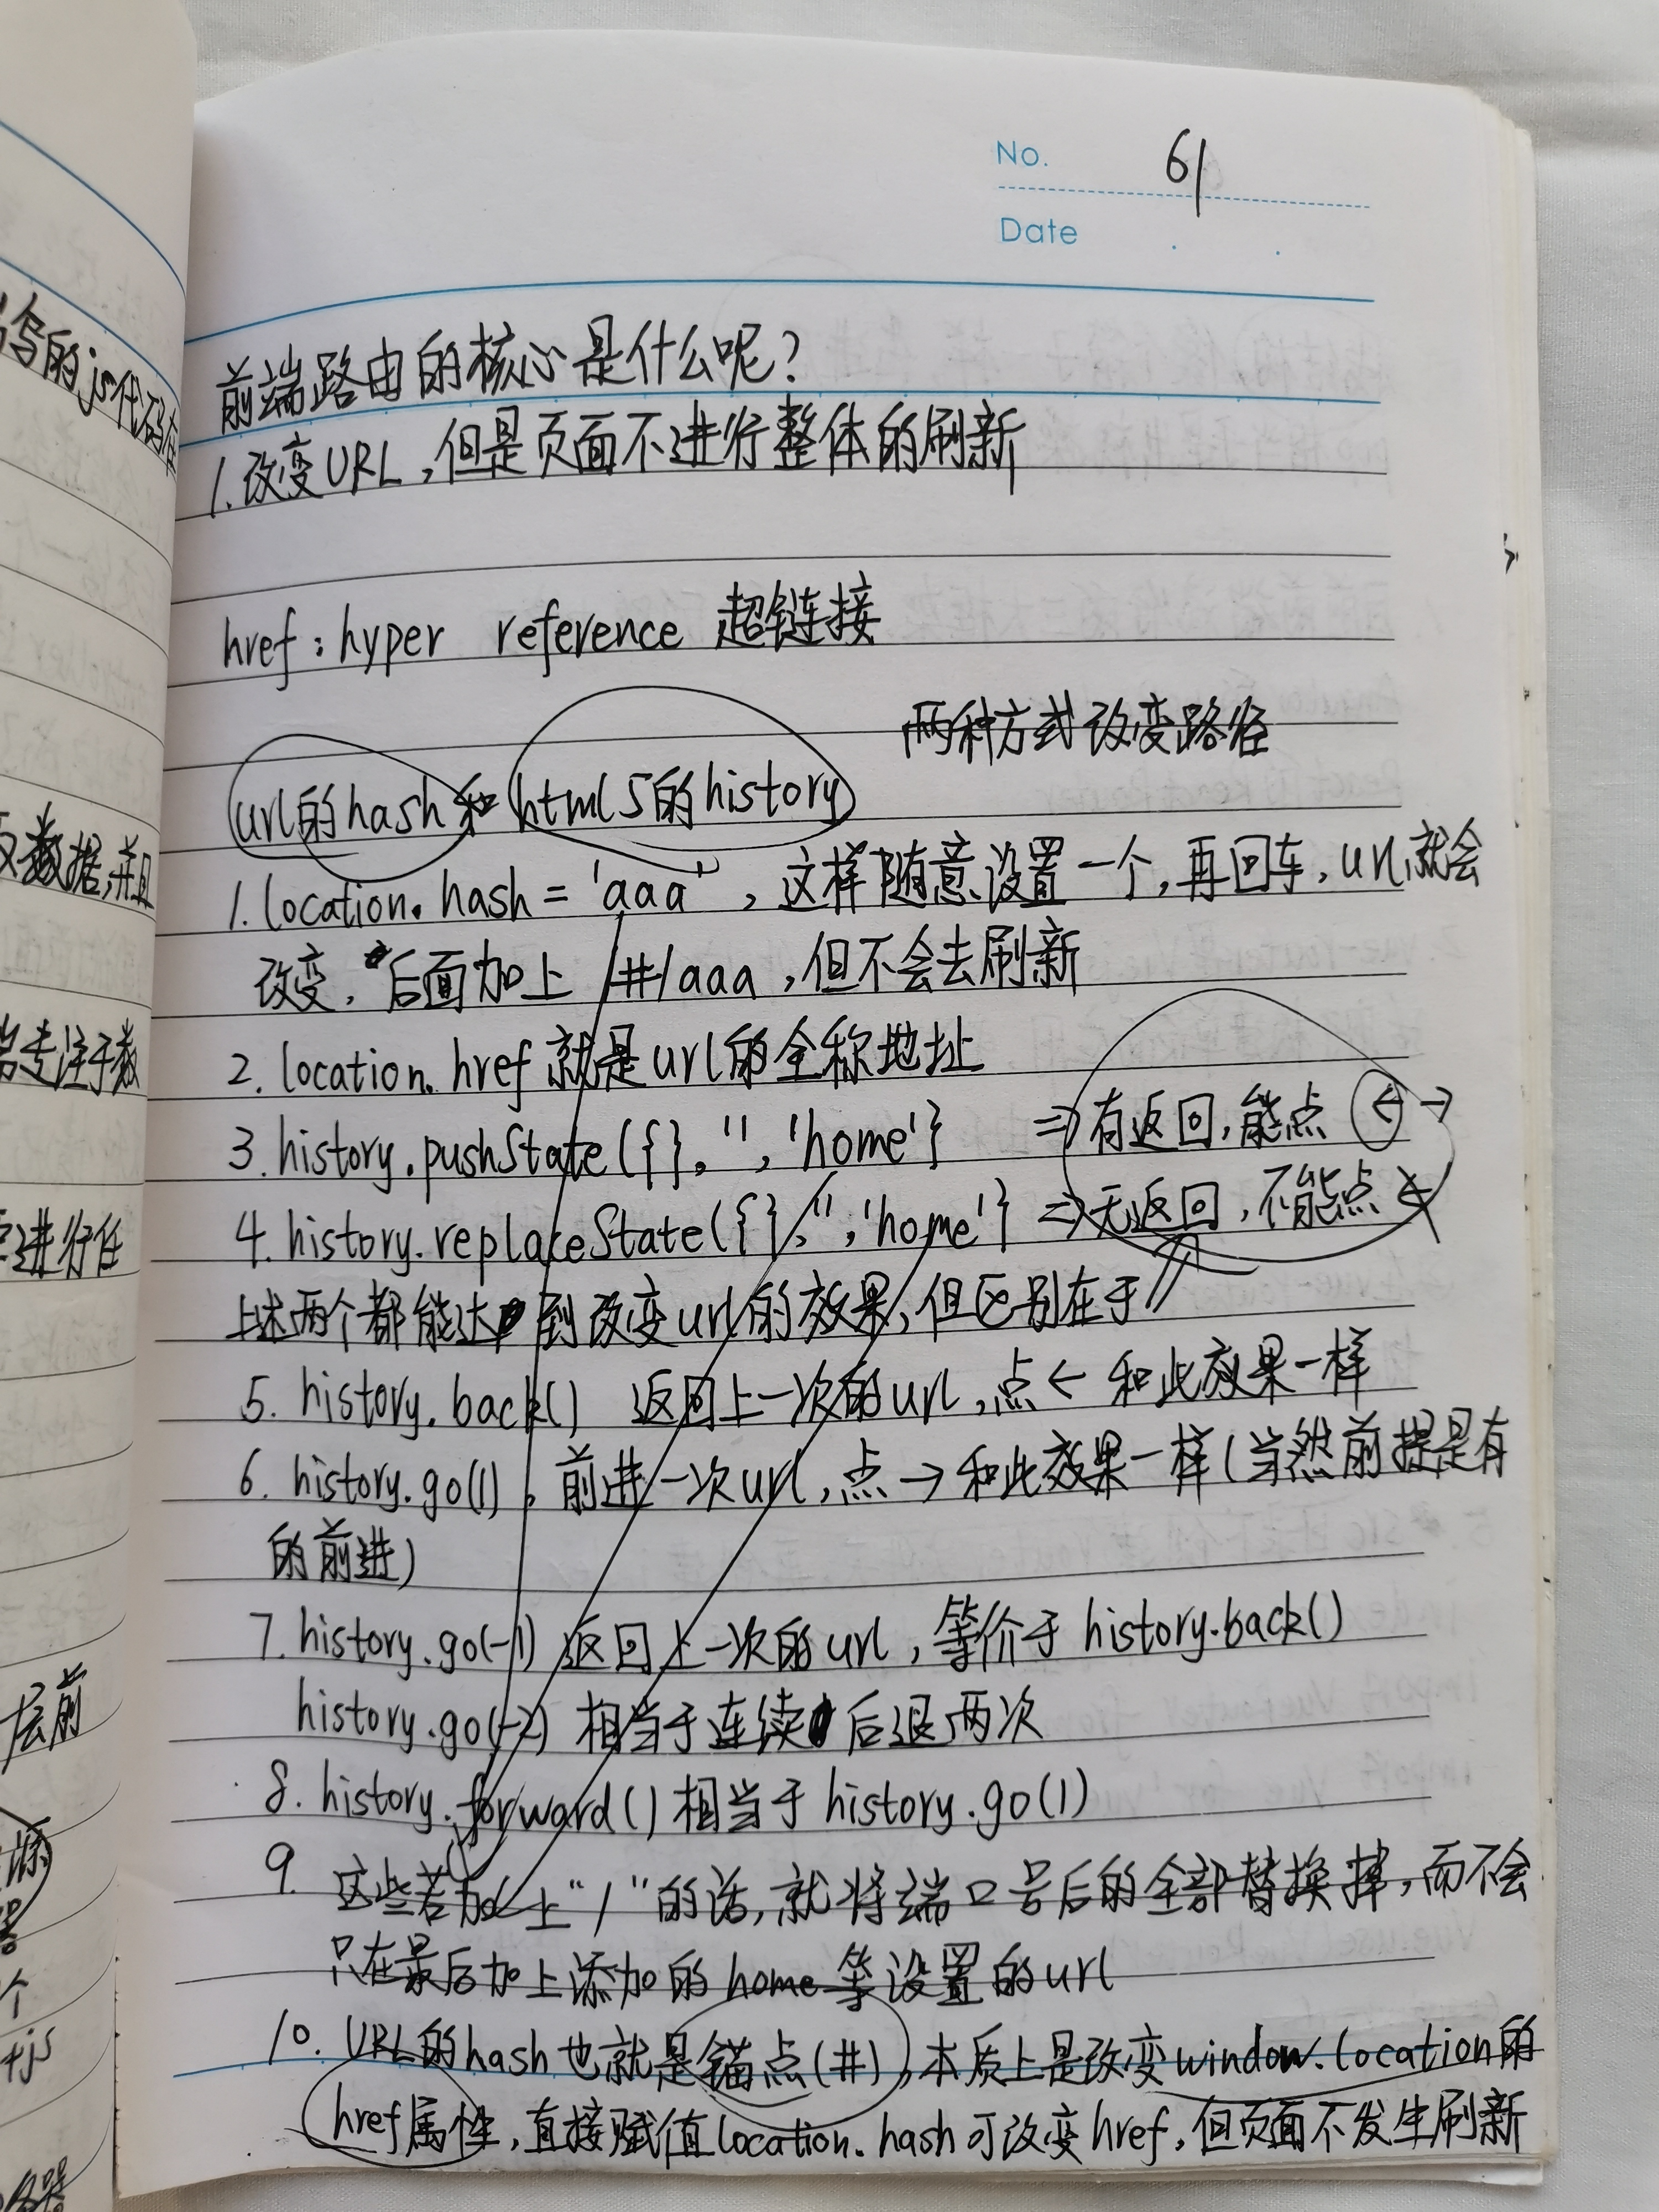 No. 61
Date
前端路由的核心是什么呢?
1. 改变URL,但是页面不进行整体的刷新
href: hyper reference 超链接
两种方式改变路径
url的hash和html5的history
1. location.hash = 'aaa', 这样随意设置一个,再回车,url就会
改变, 后面加上 /#/aaa,但不会去刷新
2. location.href 就是url的全称地址
3. history.pushState({}, '', 'home'} ⇒有返回,能点 ← →
4. history.replaceState({}, '', 'home'} ⇒无返回,不能点 ←
上述两个都能达到改变url的效果,但区别在于
5. history.back() 返回上一次的url,点← 和此效果一样
6. history.go(1), 前进一次url,点→和此效果一样(当然前提是有
的前进)
7. history.go(-1) 返回上一次的url,等价于 history.back()
history.go(-2) 相当于连续后退两次
8. history.forward() 相当于 history.go(1)
9. 这些若加上"/"的话,就将端口号后的全部替换掉,而不会
只在最后加上添加的home等设置的url
10. URL的hash也就是锚点(#),本质上是改变window.location的
href属性,直接赋值location.hash可改变href,但页面不发生刷新
写的js代码在
数据,并且
专注于数
进行任
层前
源
器
个
+js